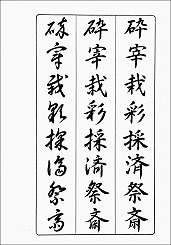 砕宰栽彩採済祭斎
砕宰栽彩採済祭斎
砕宰栽彩採済祭斎